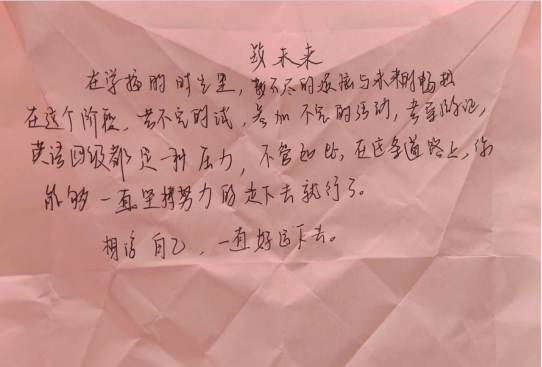 致未来
在学校的时光里，数不尽的与未来的畅想
在这个阶段，考不完的试，参加不完的活动，考
英语四级都是一种压力，不管如此，在这条道路上，你
能够一直坚持努力的走下去就行了。
相信自己，一直好运下去。